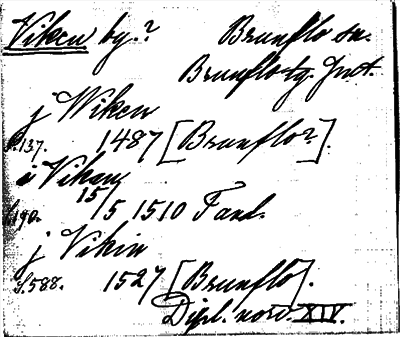 Viken by.? Brunflo sn.
Brunflo tg. Jmt.
j Wiken
S.137. 1487 [Brunflo?].
i Viken
S.190. 15/5 1510 Fanl.
j Vikin
S.588. 1527 [Brunflo].
Dipl. norv. XIV.